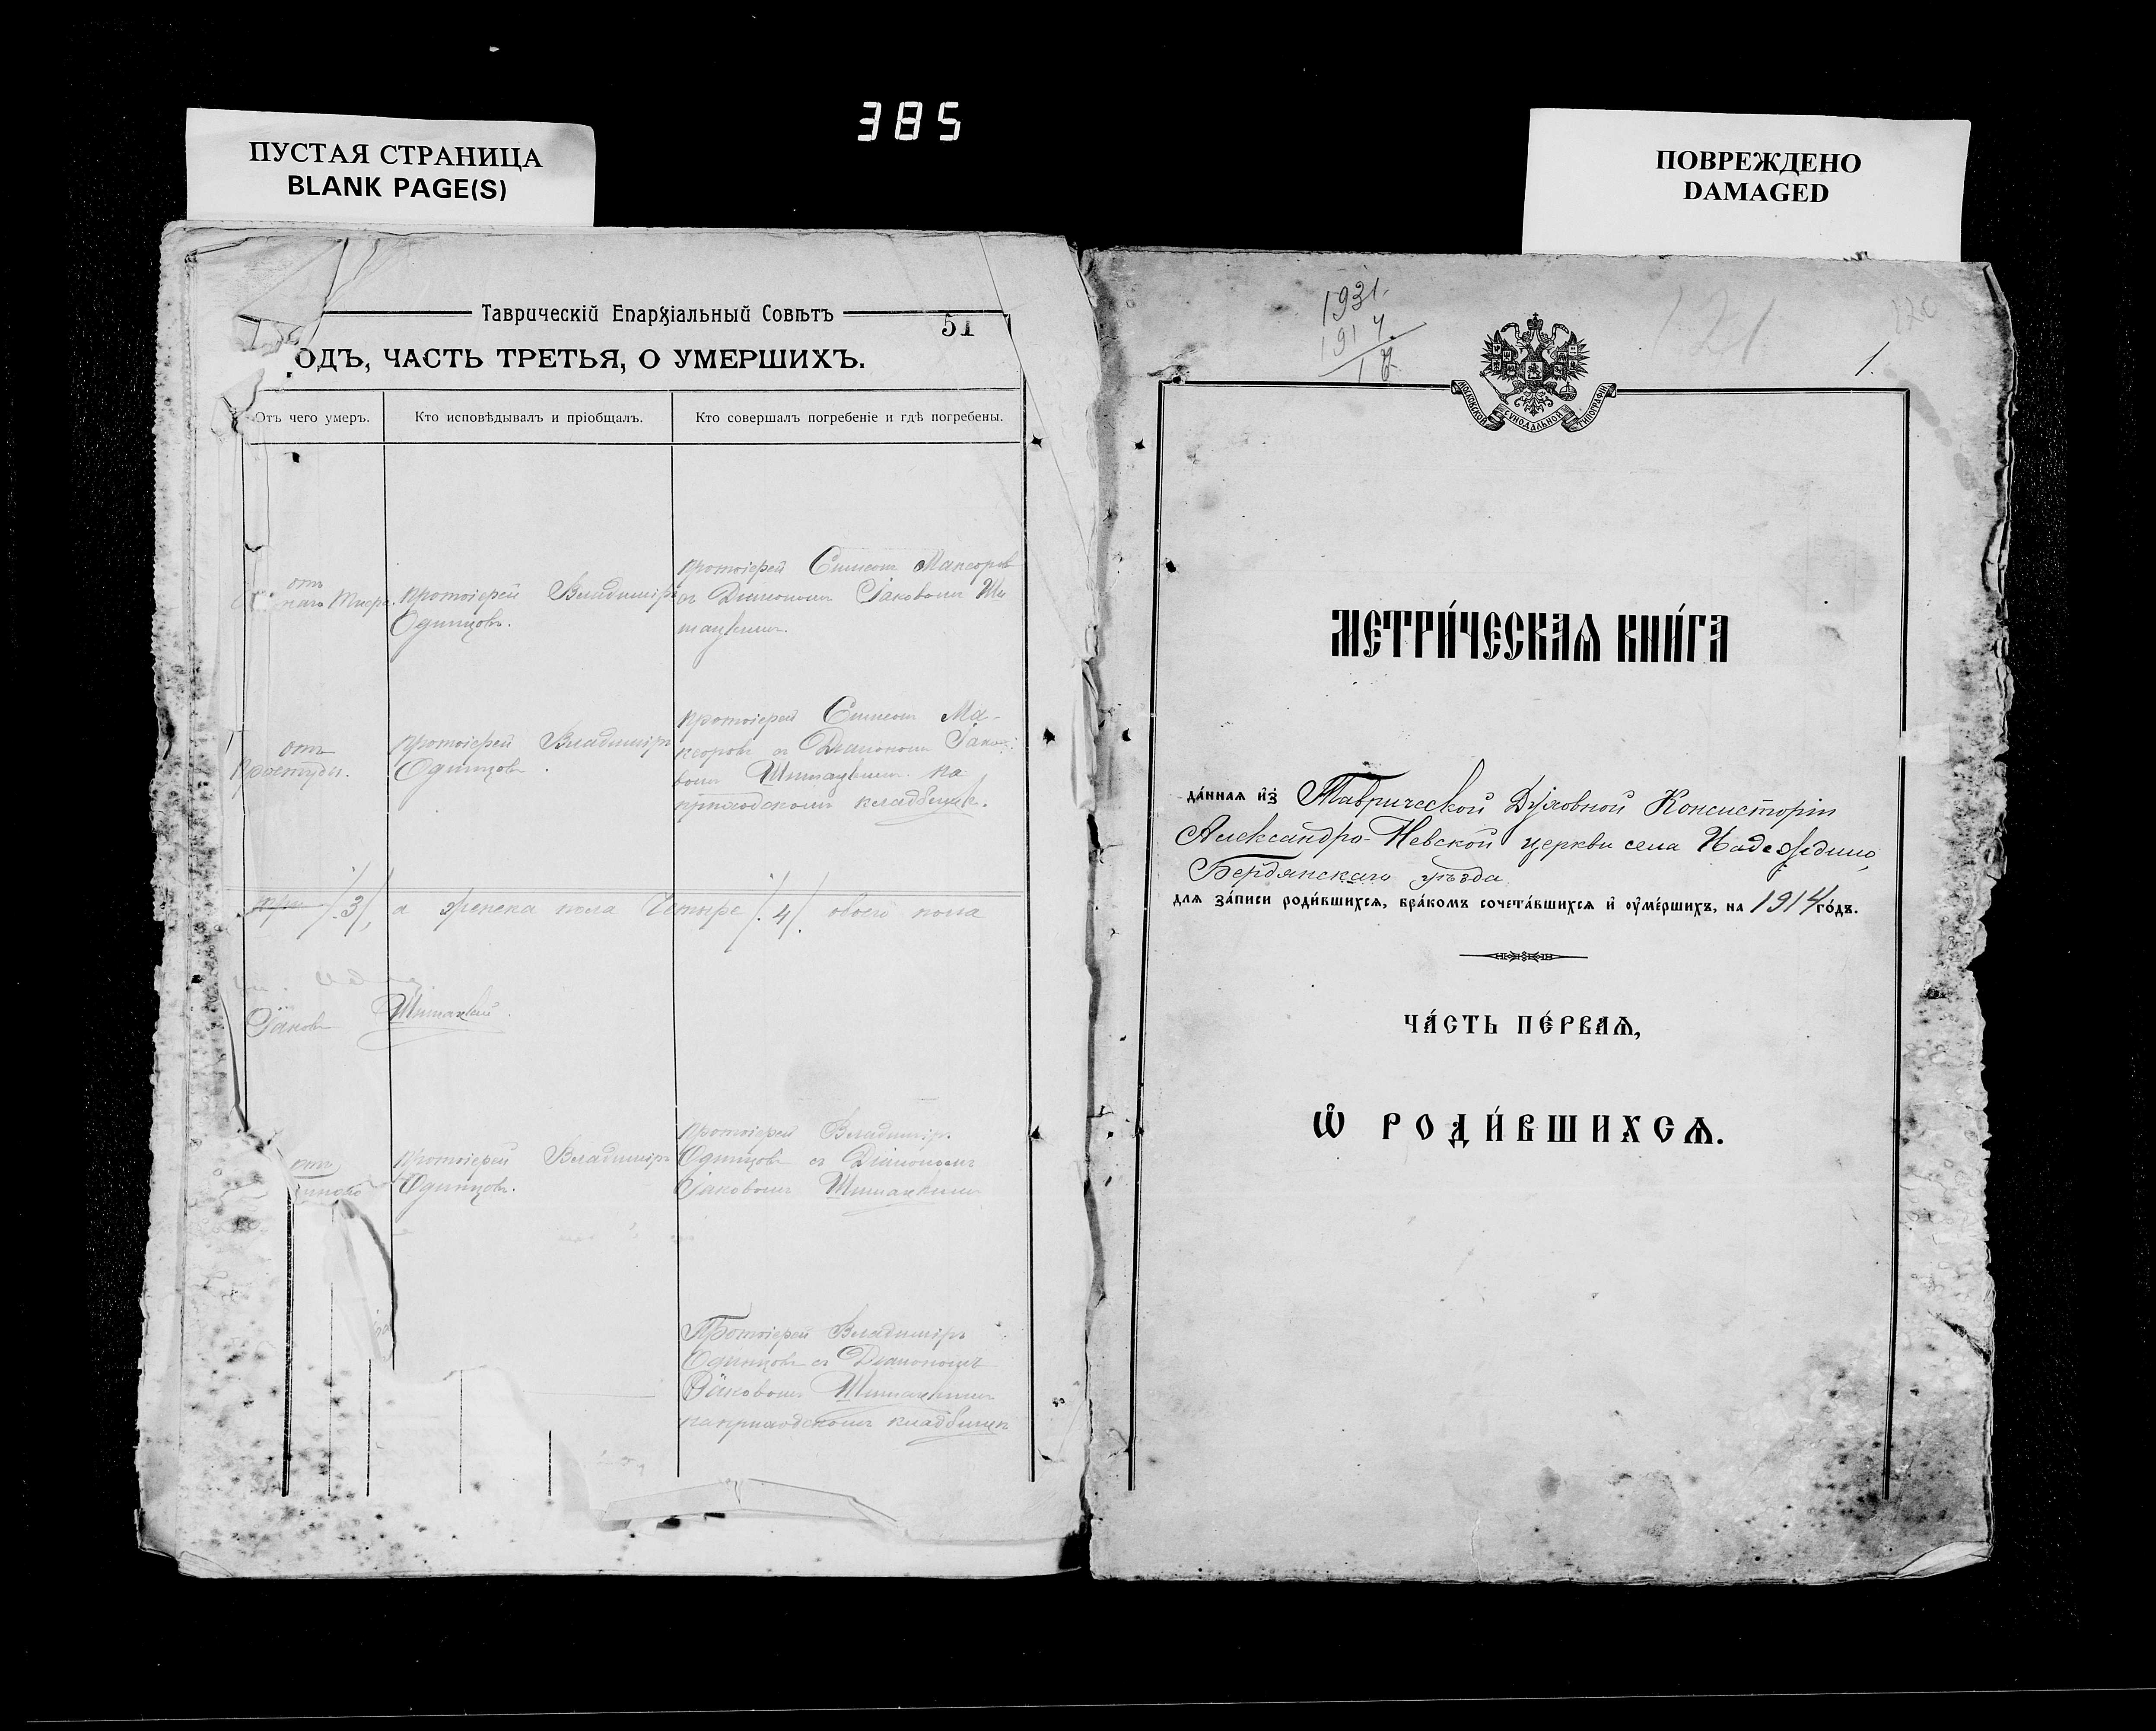 385
ПУСТАЯ СТРАНИЦА
BLANK PAGE(S)
ПОВРЕЖДЕНО
DAMAGED
Таврическій Епархіальный Совѣтъ
51
ОДЪ, ЧАСТЬ ТРЕТЬЯ, О УМЕРШИХЪ.
Отъ чего умеръ.
Кто исповѣдывалъ и пріобщалъ.
Кто совершалъ погребеніе и гдѣ погребены.
отъ
Протоіерей Владиміръ
Одинцовъ.
Протоіерей
съ Діакономъ Іаковомъ
отъ
простуды.
Протоіерей Владиміръ
Одинцовъ.
Протоіерей
съ Діакономъ Іако-
вомъ на
приходскомъ кладбищѣ.
три /.3/, а женска пола Четыре /.4/. обоего пола
Іаковъ
отъ
Протоіерей Владиміръ
Одинцовъ.
Протоіерей Владиміръ
Одинцовъ съ Діакономъ
Іаковомъ
Протоіерей Владиміръ
Одинцовъ съ Діакономъ
Іаковомъ
на приходскомъ кладбищѣ
1931.
1914
17
121
120
1.
МОСКОВСКОЙ СѴНОДАЛЬНОЙ ТИПОГРАФІИ
МЕТРИ́ЧЕСКАѦ КНИ́ГА
да́нная и҆з̾ Таврической Духовной Консисторіи
Александро-Невской церкви села Надеждино,
Бердянскаго уѣзда
для за́писи роди́вшихся, бра́комъ сочета́вшихся и҆ оу҆ме́ршихъ, на 1914 го́дъ.
ЧА́СТЬ ПЕ́РВАѦ,
Ѡ҆ РОДИ́ВШИХСѦ.